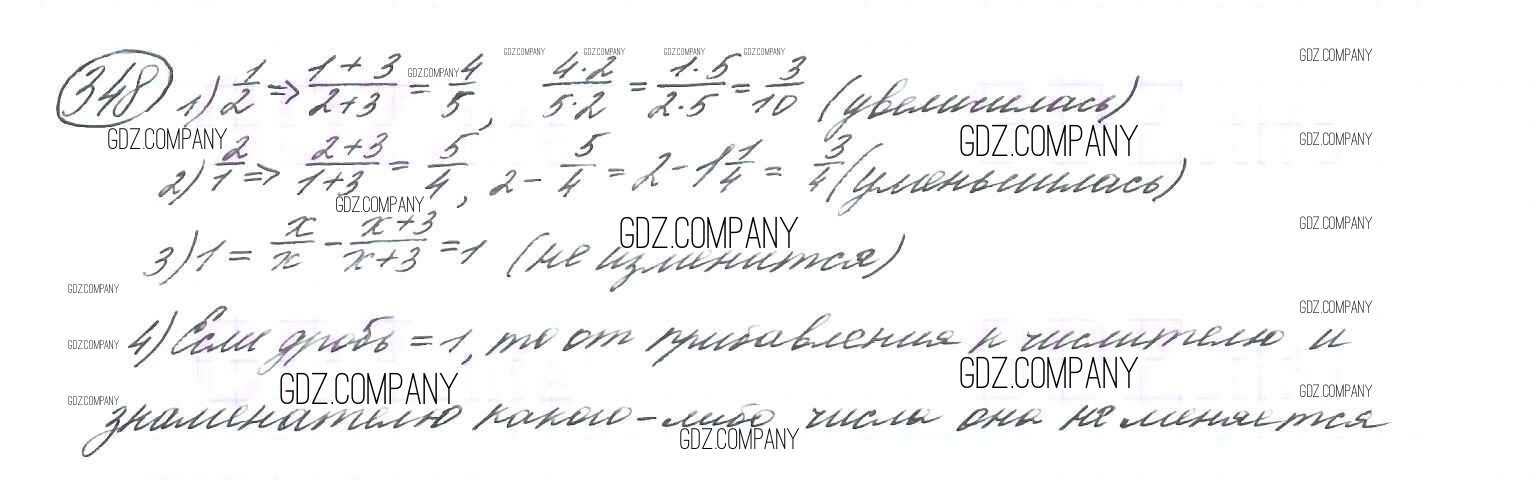 GDZ.COMPANY GDZ.COMPANY GDZ.COMPANY GDZ.COMPANY GDZ.COMPANY
348 1) 1/2 => (1+3)/(2+3) = 4/5, (4·2)/(5·2) = (1·5)/(2·5) = 3/10 (увеличилась)
GDZ.COMPANY GDZ.COMPANY
GDZ.COMPANY GDZ.COMPANY GDZ.COMPANY
2) 2/1 => (2+3)/(1+3) = 5/4, 2 - 5/4 = 2 - 1 1/4 = 3/4 (уменьшилась)
GDZ.COMPANY GDZ.COMPANY GDZ.COMPANY
3) 1 = x/x - (x+3)/(x+3) = 1 (не изменится)
GDZ.COMPANY GDZ.COMPANY
4) Если дробь = 1, то от прибавления к числителю и
GDZ.COMPANY GDZ.COMPANY GDZ.COMPANY GDZ.COMPANY
GDZ.COMPANY
знаменателю какого-либо числа она не меняется
GDZ.COMPANY